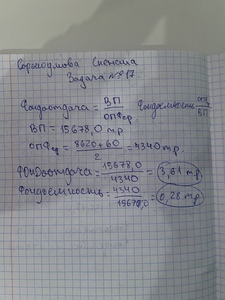 Задача №17
Фондоотдача = ВП / ОПФср Фондоемкость = ОПФ / ВП
ВП = 15678,0 т.р.
ОПФср = 8620+60 / 2 = 4340 т.р.
Фондоотдача = 15678,0 / 4340 = 3,61 т.р.
Фондоемкость = 4340 / 15678,0 = 0,28 т.р.